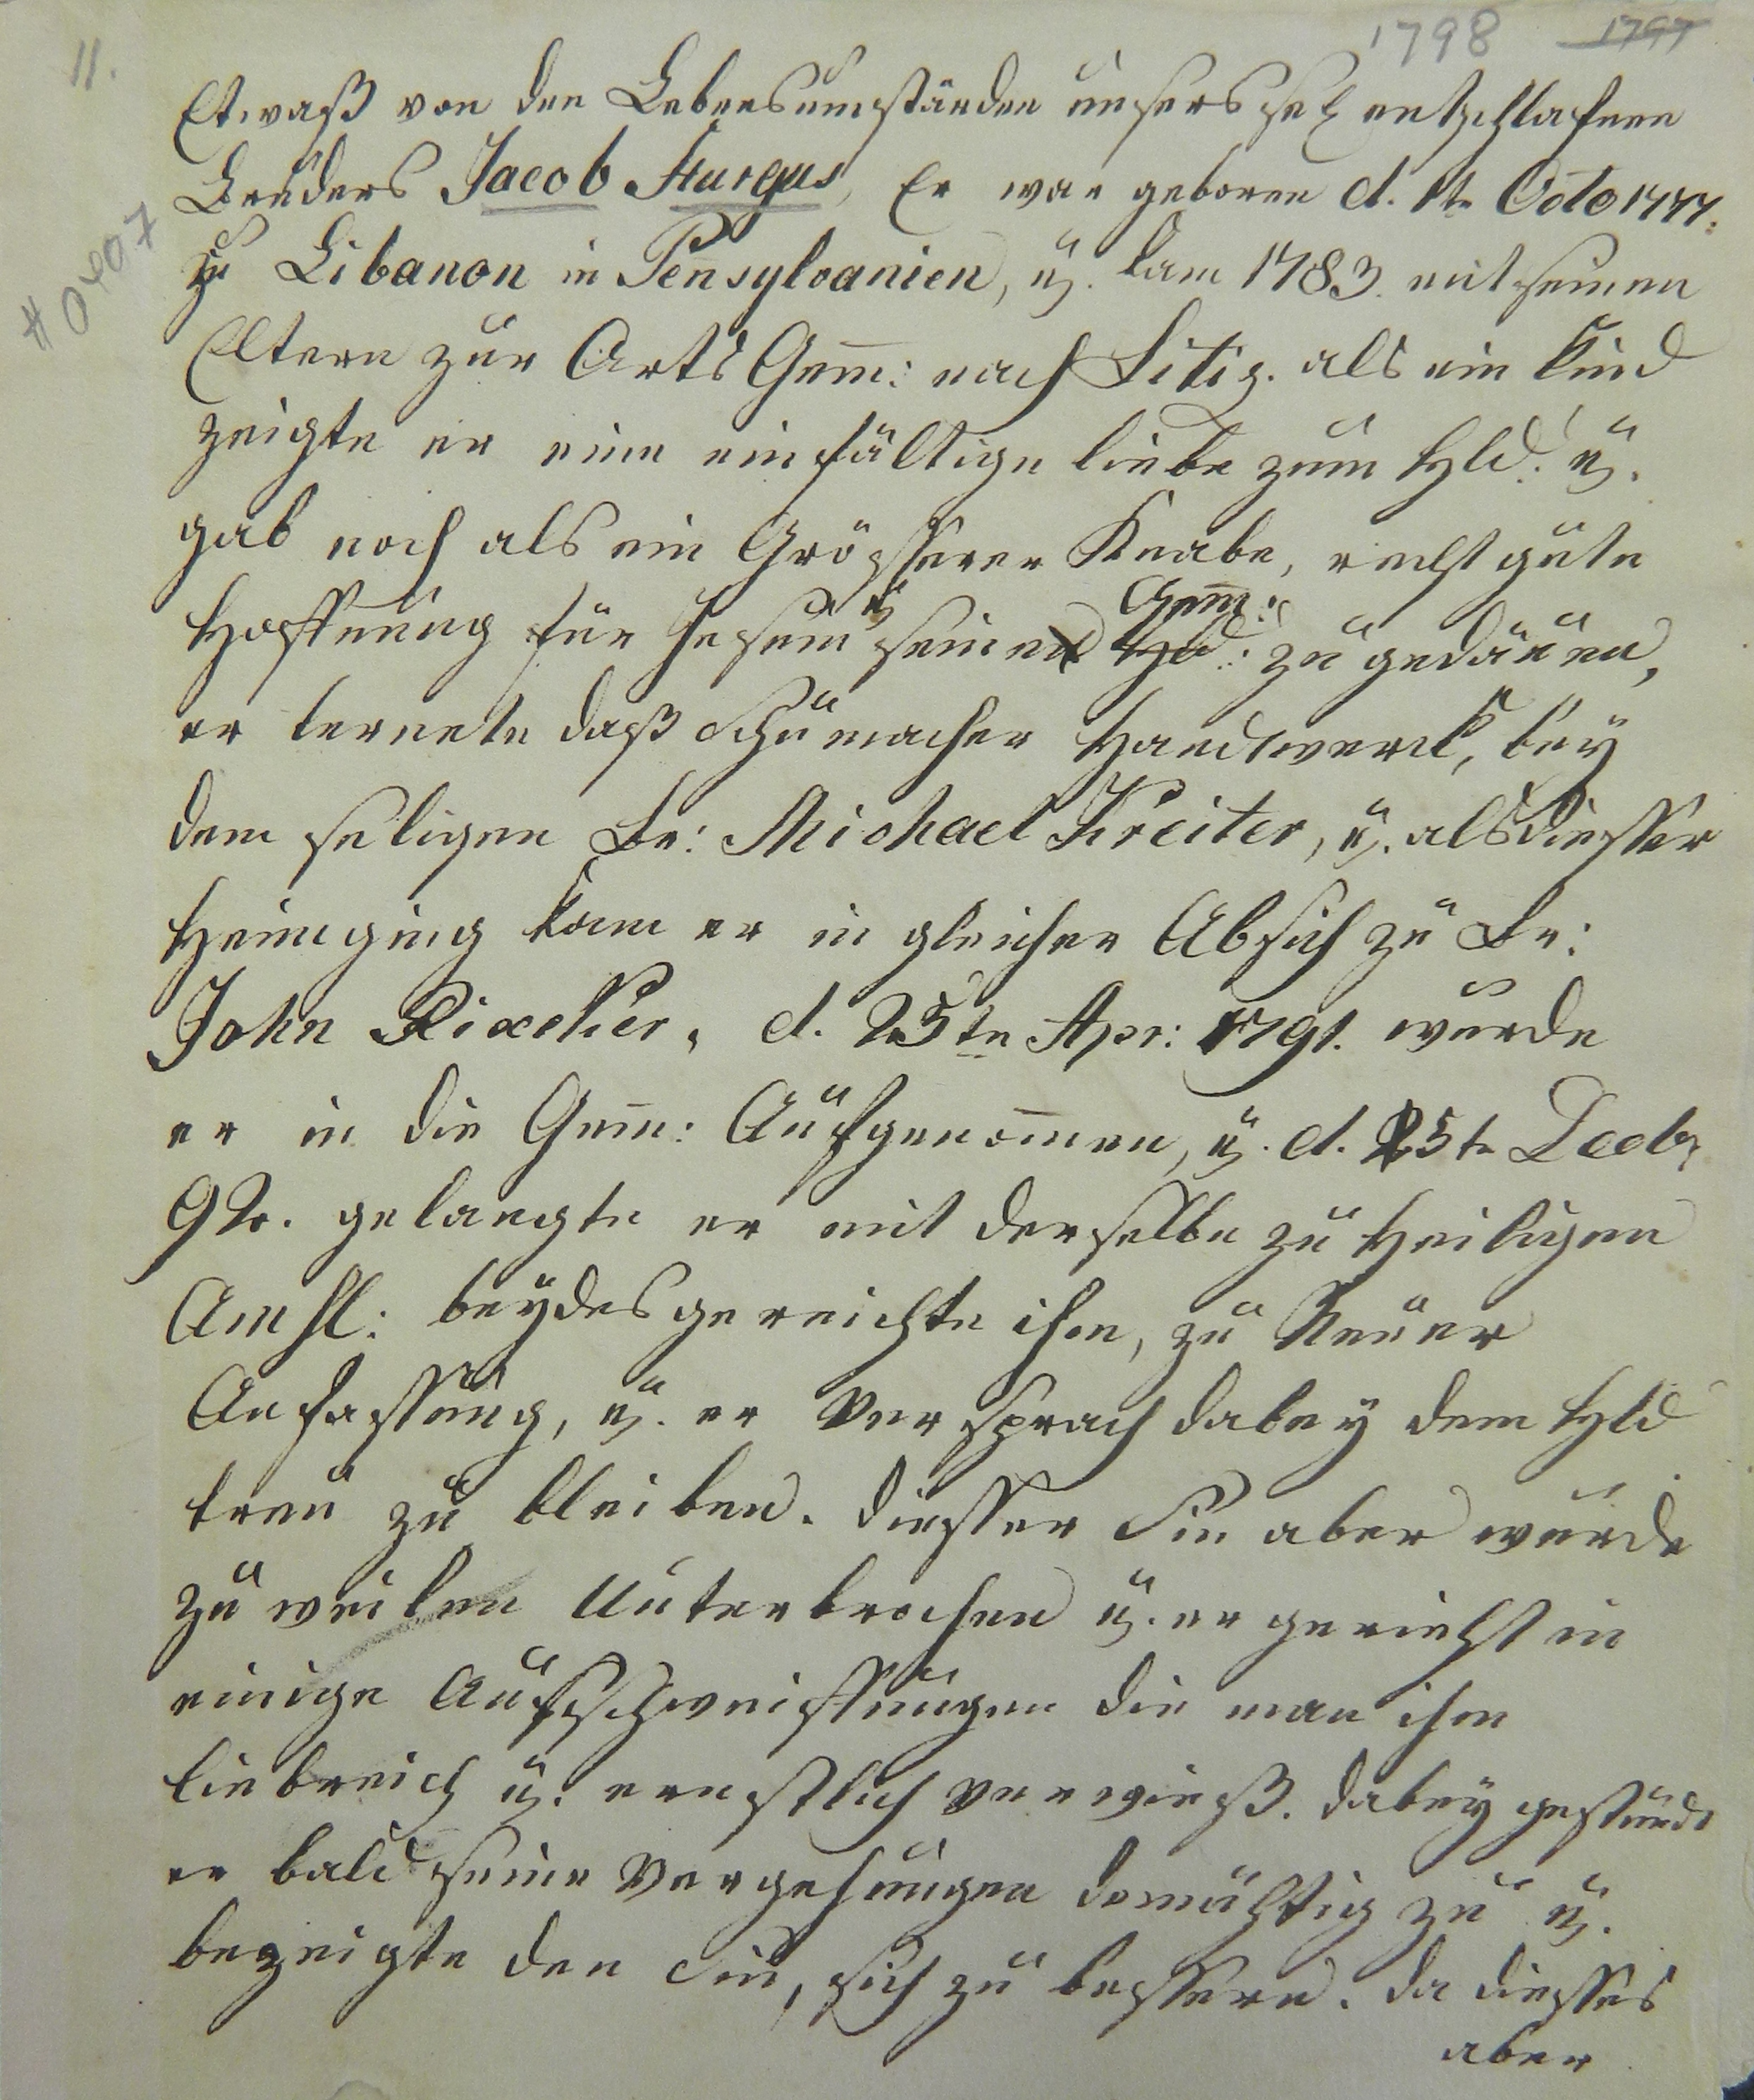 11.
1798 1797
#0407
Etwaß von den Lebensumständen unsers sel entschlafnen
Bruders Jacob Sturgus, Er war geboren d. 1t Octo 1777.
zu Libanon in Pensylvanien, u. kam 1783. mit seinen
Eltern zur Orts Gem̄: nach Litiz. als ein Kind
zeigte er eine einfältige liebe zum Hld. u.
gab noch als ein Grösserer Knabe, recht gute
Hoffnung für Jesum u seine Hld: Gem̄: zu gedäuen,
er lernete daß Schumacher Handwerck, bey
dem seligen Br: Michael Kreiter, u. als diesser
Heimging kam er in gleicher Absich zu Br:
John Rixecker, d. 25tn Apr: 1791. wurde
er in die Gem̄: Aufgenom̄en, u. d. 25t Decbr
92. gelangte er mit derselbe zu Heiligen
Amhl: beydes gereichte ihm, zu Neuer
Anfassung, u. er Versprach dabey dem Hld
treu zu bleiben. diesser Sin aber wurde
zu weilen Unterbrochen u. er gerieht in
einige Ausschweiffungen die man ihm
liebreich u. ernstlich verwieß. dabey gestunde
er bald seine Vergehungen demühtig zu u.
bezeigte den Sin, sich zu bessern. da diesses
aber